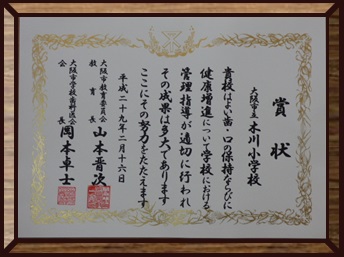 賞状
大阪市立 木川小学校
貴校はよい歯・口の保持ならびに
健康増進について学校における
管理指導が適切に行われ
その成果は多大であります
ここにその努力をたたえます
平成二十九年二月十六日
大阪市教育委員会
教育長 山本晋次
大阪市学校歯科医会
会長 岡本卓士